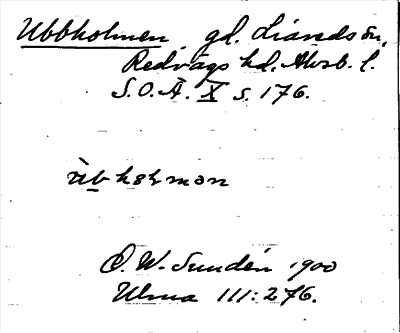 Ubbholmen, gd. Liared sn,
Redvägs hd. Älvsb. l.
S.O.Ä. X s. 176.
O. W. Sundén 1900
Ulma 111:276.